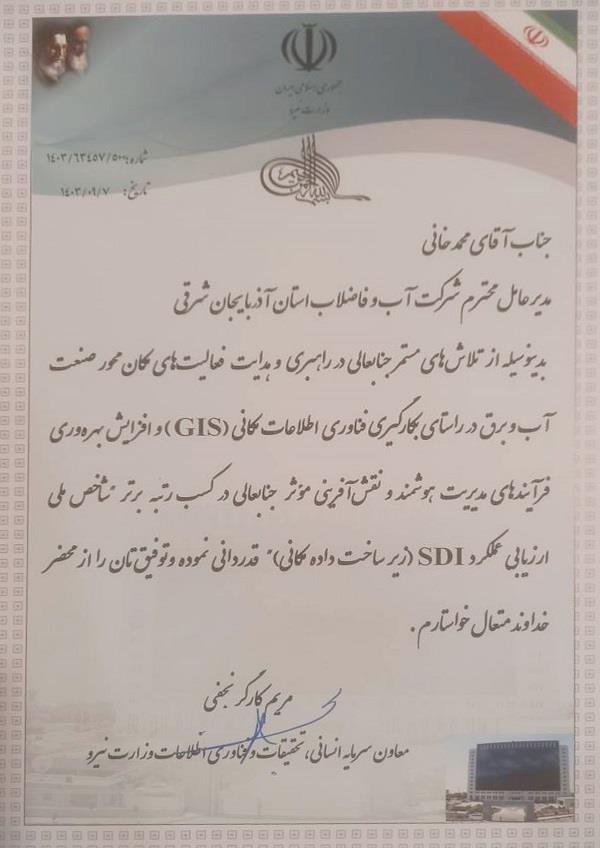 جمهوری اسلامی ایران
وزارت نیرو
شماره: ۱۴۰۳/۶۳۴۵۷/۵۰۰
تاریخ: ۱۴۰۳/۰۹/۷
جناب آقای محمدخانی
مدیرعامل محترم شرکت آب و فاضلاب استان آذربایجان شرقی
بدینوسیله از تلاش‌های مستمر جنابعالی در راهبری و هدایت فعالیت‌های مکان محور صنعت
آب و برق در راستای بکارگیری فناوری اطلاعات مکانی (GIS) و افزایش بهره‌وری
فرآیندهای مدیریت هوشمند و نقش‌آفرینی مؤثر جنابعالی در کسب رتبه برتر "شاخص ملی
ارزیابی عملکرد SDI (زیرساخت داده مکانی)" قدردانی نموده و توفیق‌تان را از محضر
خداوند متعال خواستارم.
مریم کارگر نجفی
معاون سرمایه انسانی، تحقیقات و فناوری اطلاعات وزارت نیرو